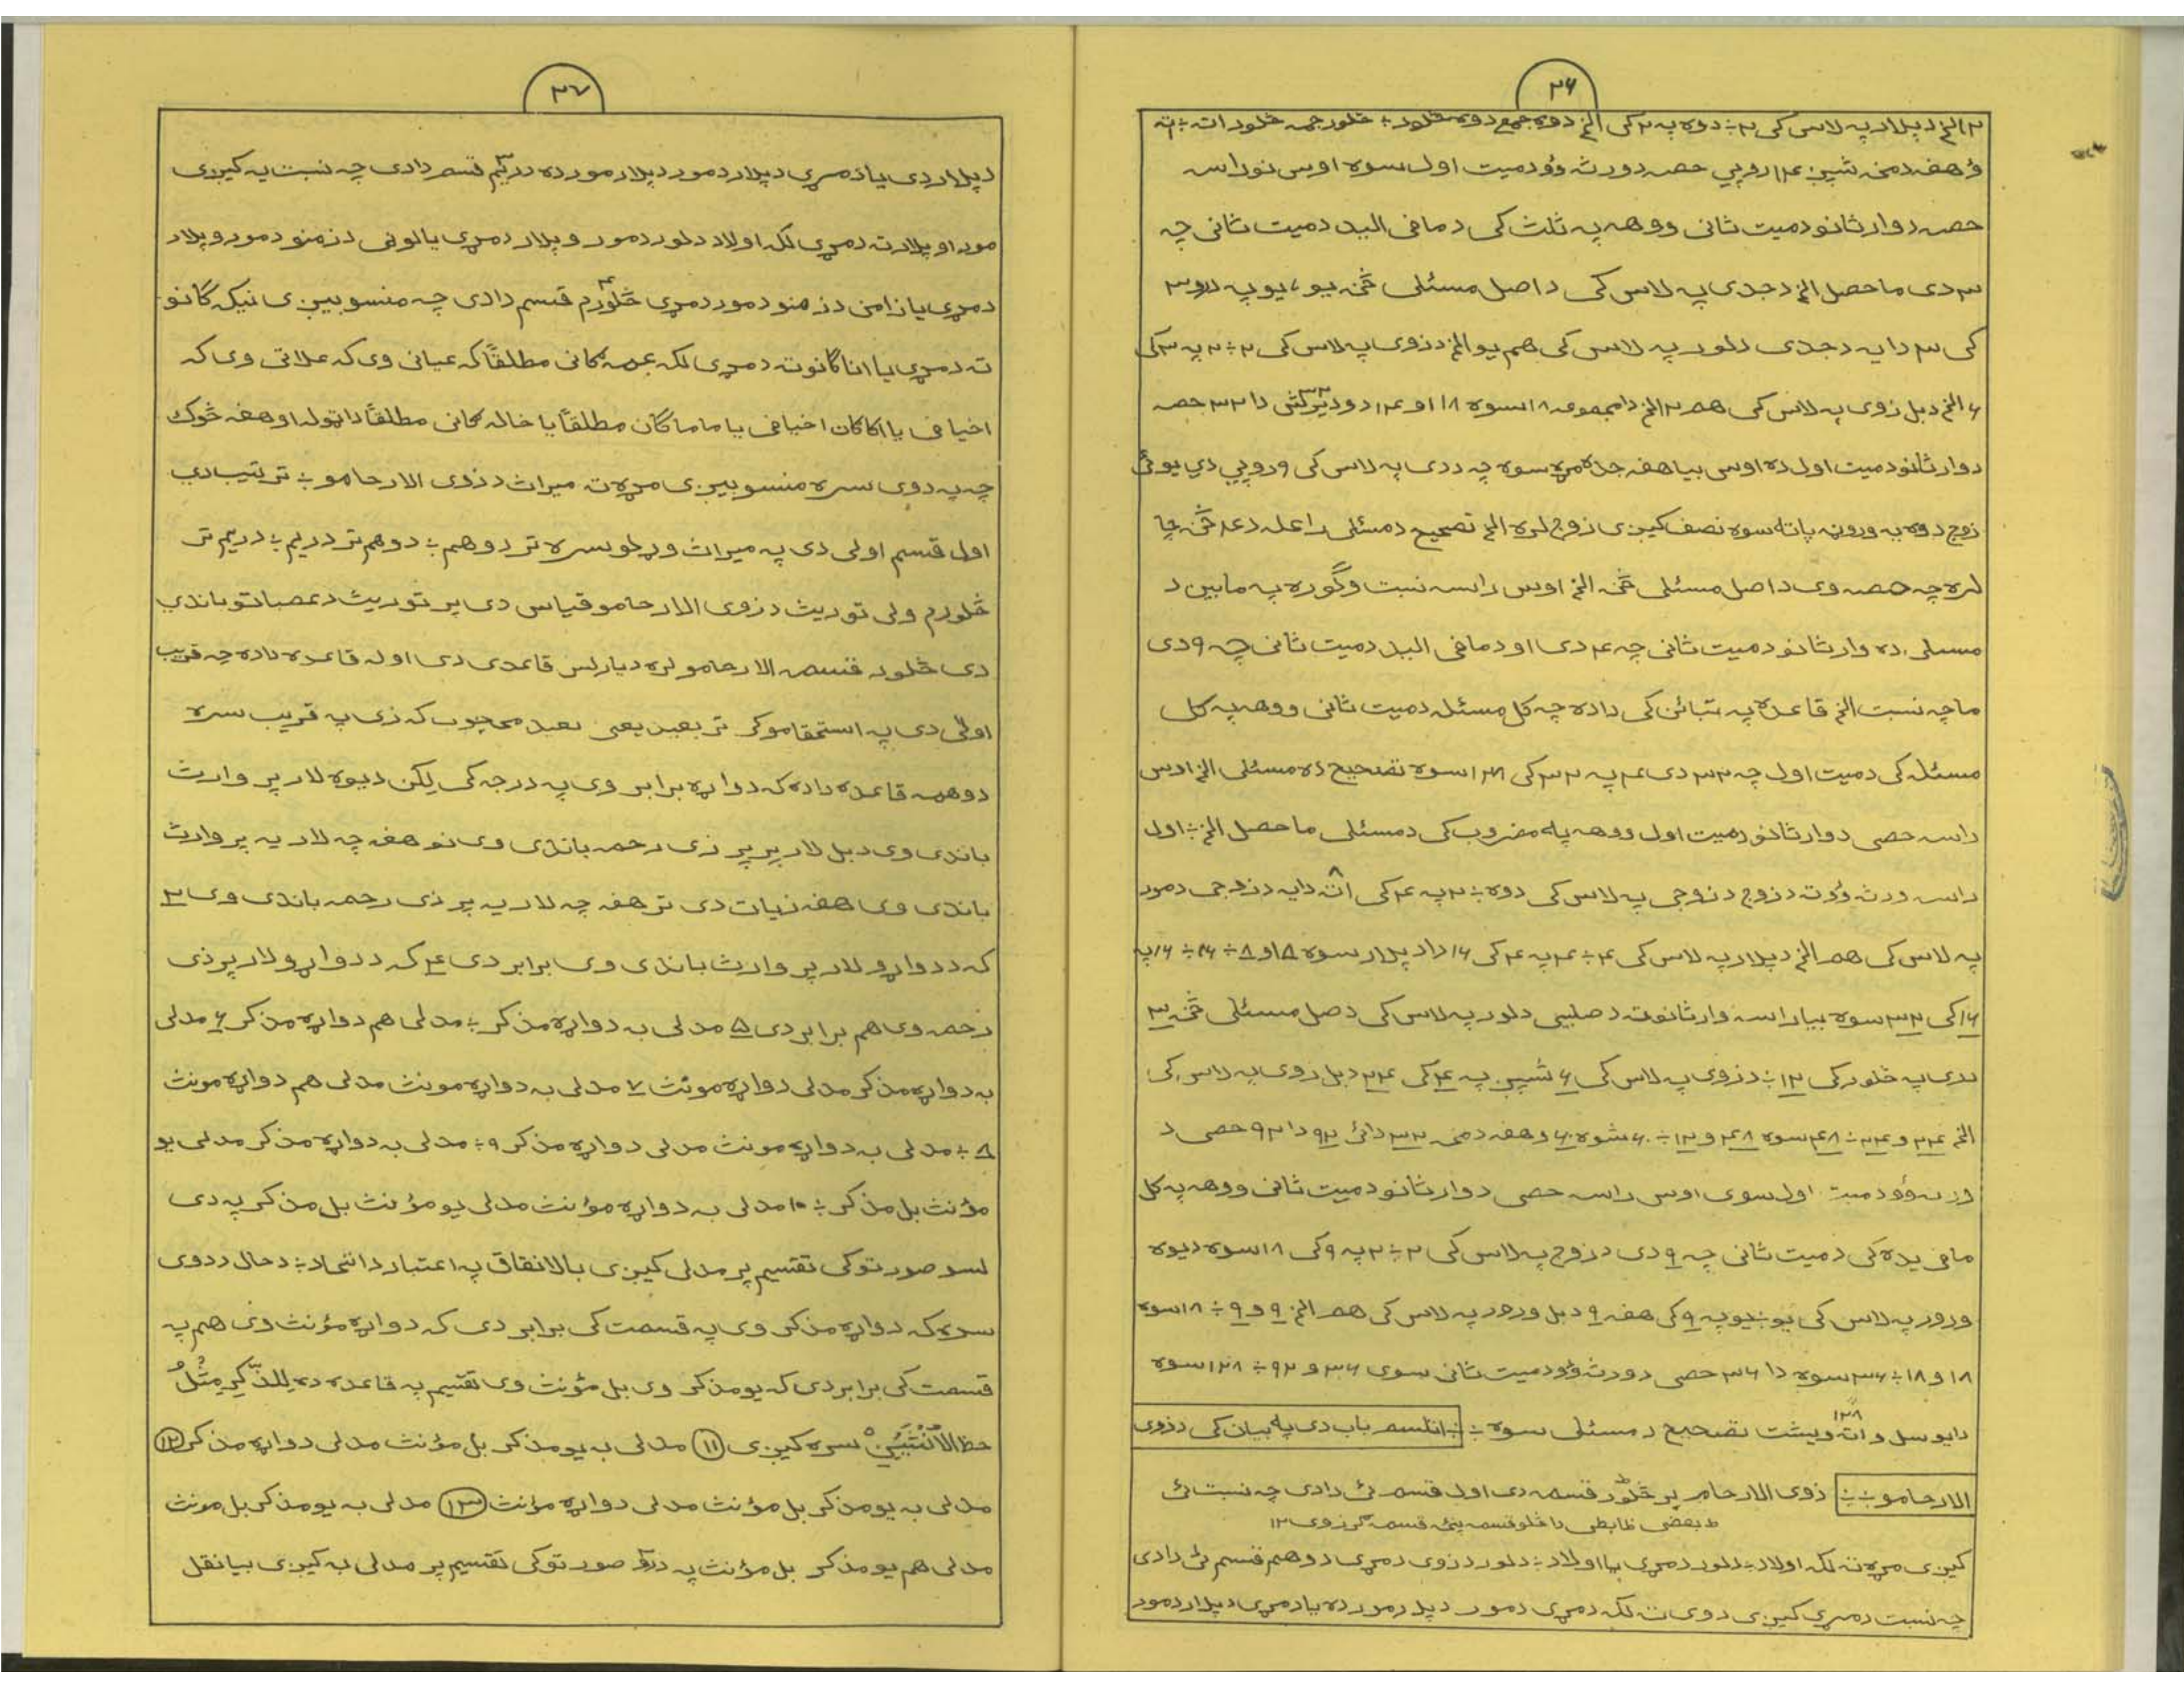 ۳۶
۱۲ الخ د پلار په لاس کی ۲ ÷ دوه په ۲ کی الخ دوه جمع دوه څلور ÷ څلور جمع څلور اته ÷
و هغه دمخه شپږ ۱۴ روپي حصه د ورثه وو د میت اول سوه اوس نو راسه
حصه د وارثانو د میت ثانی ووهه په ثلث کی د مافی الید د میت ثانی چه
۳ دی ماحصل الخ د جدی په لاس کی د اصل مسئلی څخه یو، یو په درو ۳
کی ۳ دا یه د جدی د لور په لاس کی هم یو الخ د زوی په لاس کی ۲ ÷ ۲ په ۳ کی
۶ الخ د بل زوی په لاس کی هم ۲ الخ دا مجموعه ۱۸ سوه ۱۸ او ۱۴ دوديرکش دا ۳۲ حصه
د وارثانو د میت اول ده اوس بیا هغه جده مړه سوه چه د دی په لاس کی ۹ روپي دي یو ئي
زوج دوه یه ورونه پاته سوه نصف کیږی زوج لره الخ تصحیح د مسئلی راعله د ۴ څخه چا
لره چه حصه وی د اصل مسئلی څخه الخ اوس راسه نسبت وګوره په مابین د
مسلی ده وارثانو د میت ثانی چه ۴ دی او د مافی الید د میت ثانی چه ۹ دی
ما چه نسبت الخ قاعده په تبائن کی داده چه کل مسئله د میت ثانی ووهه په کل
مسئله کی د میت اول چه ۳۲ دی ۴ په ۳۲ کی ۱۲۸ سوه تصحیح ده مسئلی الخ اوس
راسه حصی د وارثانو د میت اول ووهه په مضروب کی د مسئلی ماحصل الخ ÷ اول
راسه ورثه وو ته د زوج د زوجی په لاس کی دوه ÷ ۲ په ۴ کی اته ۸ دا یه د زوجی د مور
په لاس کی هم الخ د پلار په لاس کی ۴ ÷ ۴ په ۴ کی ۱۶ دا د پلار سوه ۸ او ۸ ÷ ۱۶ ÷ ۱۶ په
۱۶ کی ۳۲ سوه بیا راسه وارثانو ته د صلبیی د لور په لاس کی د صل مسئلی څخه ۳
دی په څلور کی ۱۲ ÷ د زوی په لاس کی ۶ شپږ په ۴ کی ۲۴ د بل زوی په لاس کی
الخ ۲۴ و ۲۴ ÷ ۴۸ سوه ۴۸ و ۱۲ ÷ ۶۰ شوه ۶۰ و هغه دمخه ۳۲ دائ ۹۲ دا ۹۲ حصی د
ورثه وو د میت اول سوی اوس راسه حصی د وارثانو د میت ثانی ووهه په کل
مافی یده کی د میت ثانی چه ۹ دی د زوج په لاس کی ۲ ÷ ۲ په ۹ کی ۱۸ سوه د یوه
ورور په لاس کی یو ÷ یو په ۹ کی هغه ۹ د بل ورور په لاس کی هم الخ ۹ و ۹ ÷ ۱۸ سوه
۱۸ و ۱۸ ÷ ۳۶ سوه دا ۳۶ حصی د ورثه وو د میت ثانی سوی ۳۶ و ۹۲ ÷ ۱۲۸ سوه
دا یو سل و اته ویشت ۱۲۸ تصحیح د مسئلی سوه ÷ ÷ اتلسم باب دی په بیان کی د ذوی
الارحامو ÷ ÷ ذوی الارحام پر څلور قسمه دی اول قسم ئی دادی چه نسبت ئی
ط بعضی ضابطی دا څلو قسمه پنځه قسمه ګرزوی ۱۲
کیږی مړه ته لکه اولاد د لور د مړی یا اولاد د لور د زوی د مړی دوهم قسم ئی دادی
چه نسبت د مړی کیږی دوی ته لکه د مړی د مور د پلر مور ده یا د مړی د پلار د مور
۳۷
د پلار دی یا د مړی د پلار د مور د پلار مور ده دریم ۳ قسم دادی چه نسبت یه کیږی
مور او پلار ته د مړی لکه اولاد د لور د مور و پلار د مړی یا لونی د زمنو د مور و پلار
د مړی یا زامن د زمنو د مور د مړی څلورم ۴ قسم دادی چه منسوبیږی نیکه ګانو
ته د مړی یا انا ګانو ته د مړی لکه عمه ګانی مطلقاً که عیانی وی که علاتی وی که
اخیافی یا اکاګان اخیافی یا ماماګان مطلقاً یا خاله ګانی مطلقاً دا ټوله او هغه څوک
چه په دوی سره منسوبیږی مړه ته میراث د ذوی الارحامو ÷ ترتیب دی
اول قسم اولی دی په میراث وړلو سره تر دوهم ÷ دوهم تر دریم ÷ دریم تر
څلورم ولی توریث د ذوی الارحامو قیاس دی پر توریث د عصباتو باندي
دی څلور قسمه الارحامو لره دیارلس قاعدی دی اوله قاعده داده چه قریب
اولی دی په استحقاق کر تر بعید یعی بعید محجوب که ذی په قریب سره
دوهمه قاعده داده که دواړه برابر وی په درجه کی لکن د یوه لار پر وارث
باندی وی د بل لار پر ذی رحمه باندی وی نو هغه چه لار یه پر وارث
باندی وی هغه زیات دی تر هغه چه لار یه پر ذی رحمه باندی وی ۳
که د دواړو لار پر وارث باندی وی برابر دی ۴ که د دواړو لار پر ذی
رحمه وی هم برابر دی ۵ مدلی به دواړه مذکر ÷ مدلی هم دواړه مذکر ۶ مدلی
به دواړه مذکر مدلی دواړه مونث ۷ مدلی به دواړه مونث مدلی هم دواړه مونث
۸ ÷ مدلی به دواړه مونث مدلی دواړه مذکر ۹ ÷ مدلی به دواړه مذکر مدلی یو
مؤنث بل مذکر ÷ ۱۰ مدلی به دواړه مؤنث مدلی یو مؤنث بل مذکر په دی
لسو صورتو کی تقسیم پر مدلی کیږی بالاتفاق په اعتبار د اتحاد ÷ د حال د دوی
سره که دواړه مذکر وی په قسمت کی برابر دی که دواړه مؤنث وی هم په
قسمت کی برابر دی که یو مذکر وی بل مؤنث وی تقسیم په قاعده ده لِلذَّکَرِ مِثْلُ
حظ الاُنْثَیَیْنِ سره کیږی ⑪ مدلی به یو مذکر بل مؤنث مدلی دواړه مذکر ⑫
مدلی به یو مذکر بل مؤنث مدلی دواړه مؤنث ⑬ مدلی به یو مذکر بل مونث
مدلی هم یو مذکر بل مؤنث په صورتو کی تقسیم پر مدلی به کیږی بیا نقل